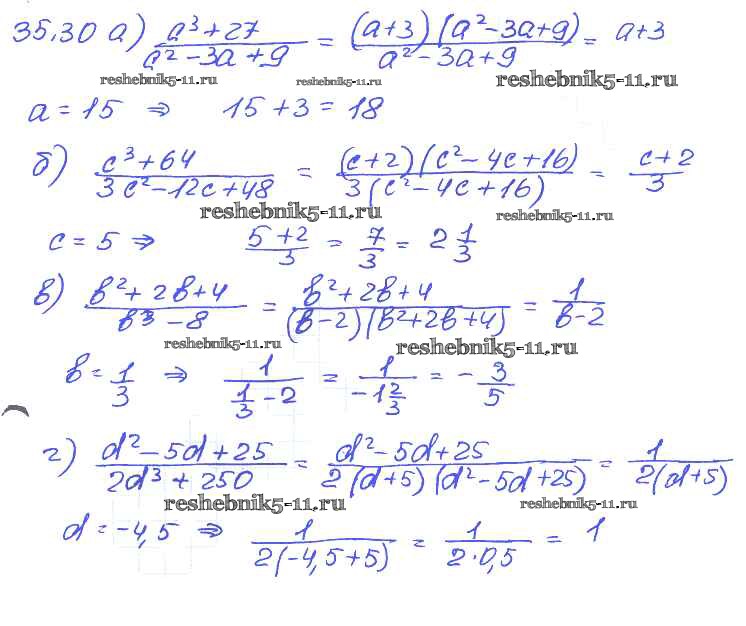 35.30 а) (a³+27)/(a²-3a+9) = ((a+3)(a²-3a+9))/(a²-3a+9) = a+3
reshebnik5-11.ru reshebnik5-11.ru reshebnik5-11.ru
a = 15 ⇒ 15+3 = 18
б) (c³+64)/(3c²-12c+48) = ((c+2)(c²-4c+16))/(3(c²-4c+16)) = (c+2)/3
reshebnik5-11.ru reshebnik5-11.ru
c = 5 ⇒ (5+2)/3 = 7/3 = 2 1/3
в) (b²+2b+4)/(b³-8) = (b²+2b+4)/((b-2)(b²+2b+4)) = 1/(b-2)
reshebnik5-11.ru reshebnik5-11.ru
b = 1/3 ⇒ 1/(1/3-2) = 1/(-1 2/3) = -3/5
г) (d²-5d+25)/(2d³+250) = (d²-5d+25)/(2(d+5)(d²-5d+25)) = 1/(2(d+5))
reshebnik5-11.ru reshebnik5-11.ru
d = -4,5 ⇒ 1/(2(-4,5+5)) = 1/(2·0,5) = 1